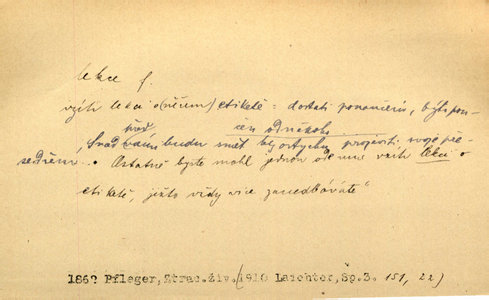 lekce f.
vzíti lekci o (něčem) etiketě : dostati ponaučení, býti pou-
před čen od někoho
„Snad vám budu smět bez ostychu projeviti svoje pře-
sedření. Ostatně byste mohl jednou ode mne vzíti lekci o
etiketě, již to vždy více zanedbáváte“
1862 Pfleger, Ztrac.živ.(1910 Laichter, Sp.3. 151, 22)